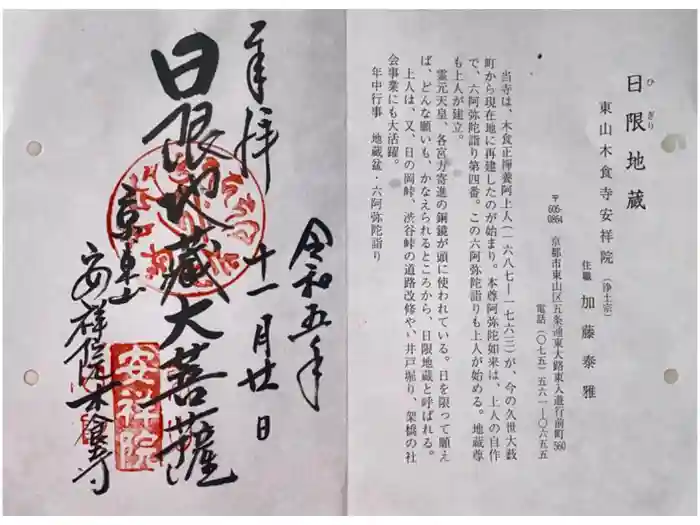 奉拝
令和五年
十一月廿日
日限地蔵大菩薩
京東山
安祥院木食寺
安祥院
日限地蔵
ひぎり
東山木食寺安祥院（浄土宗）
住職　加藤泰雅
〒605-0864　京都市東山区五条通東大路東入遊行前町560
電話（〇七五）五六一―〇六五五
当寺は、木食正禅養阿上人（一六八七―一七六三）が、今の久世大藪
町から現在地に再建したのが始まり。本尊阿弥陀如来は、上人の自作
で、六阿弥陀詣り第四番。この六阿弥陀詣りも上人が始める。地蔵尊
も上人が建立。
霊元天皇、各宮方寄進の銅鏡が頭に使われている。日を限って願え
ば、どんな願いも、かなえられるところから、日限地蔵と呼ばれる。
上人は、又、日の岡峠、渋谷峠の道路改修やい井戸堀り、架橋の社
会事業にも大活躍。
年中行事　地蔵盆・六阿弥陀詣り